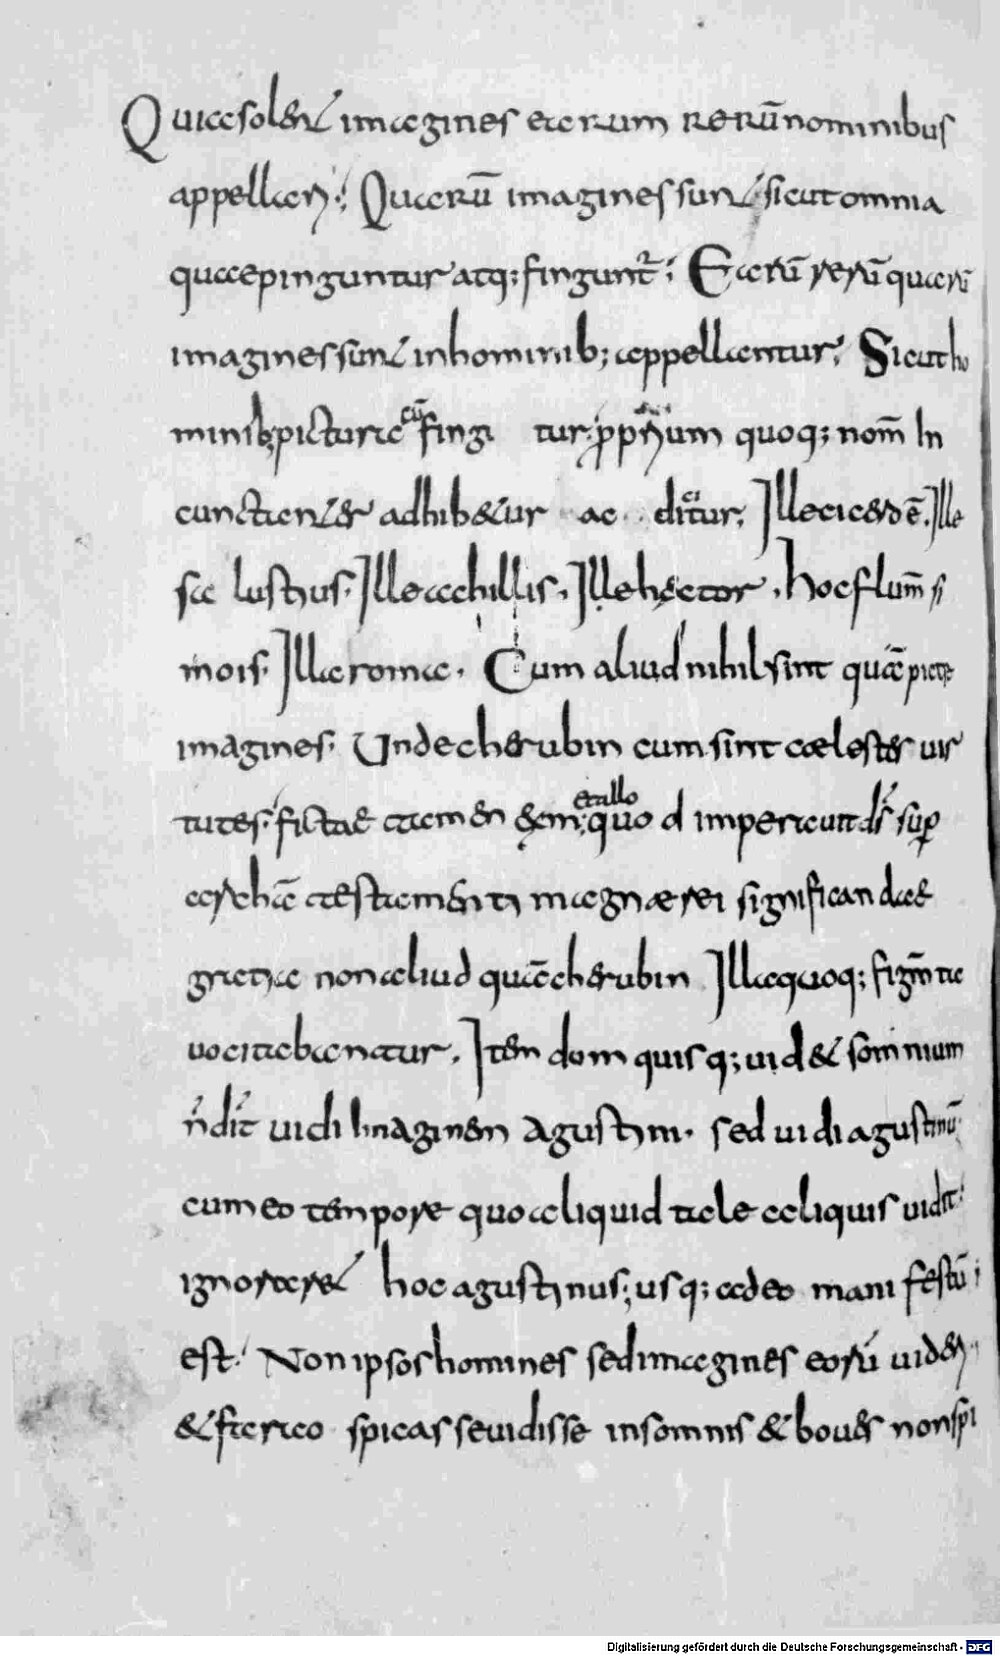 Quia solent imagines earum rerū nominibus
appellari; Quarū imagines sunt sicut omnia
quae pinguntur atq; fingunt̃; Earū rerū quarū
imagines sunt in hominib; appellantur; Sicut ho
minib; pictura cū fingi tur; pprium quoq; nom̄ In
cunctanter adhibetur ac dicitur; Ille cicero ē. Ille
sa lustius. Ille achillis. Ille hector. hoc flum̄ si
mois. Illa roma. Cum aliud nihil sint quā pictę
imagines. Unde cherubin cum sint caelestes uir
tutes. fictae tamen ex metallo quod imperauit ds̄ sup
archā testamenti magnae rei significandae
gratia non aliud quā cherubin Illa quoq; figm̄ta
uocitabantur. Item dom quisq; uidet somnium
n̄ dīc uidi Imaginem agustini. sed uidi agustinū
cum eo tempore quo aliquid tale aliquis uidit
ignoraret hoc agustinus; usq; adeo manifestū
est. Non ipsos homines sed imagines eorū uideri
et farao spicas se uidisse in somnis et boues non spi
Digitalisierung gefördert durch die Deutsche Forschungsgemeinschaft - DFG